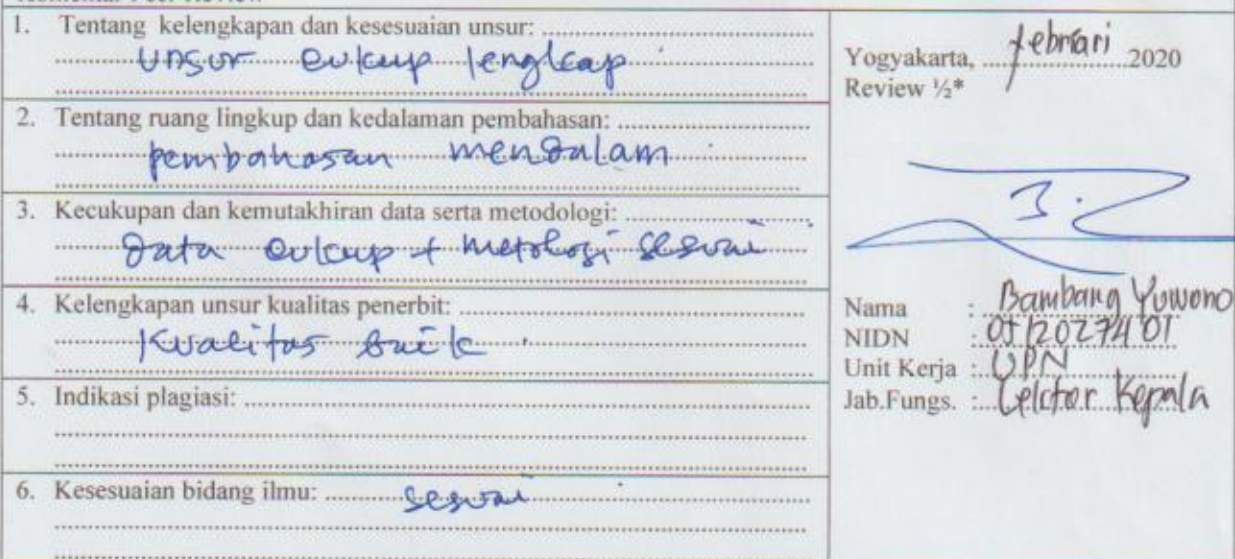 1. Tentang kelengkapan dan kesesuaian unsur:
Unsur cukup lengkap
2. Tentang ruang lingkup dan kedalaman pembahasan:
pembahasan mendalam
3. Kecukupan dan kemutakhiran data serta metodologi:
Data cukup + metologi sesuai
4. Kelengkapan unsur kualitas penerbit:
Kualitas baik.
5. Indikasi plagiasi:
6. Kesesuaian bidang ilmu: sesuai
Yogyakarta, Februari 2020
Review ½*
Nama : Bambang Yuwono
NIDN :
Unit Kerja : UPN
Jab.Fungs. : Lektor Kepala